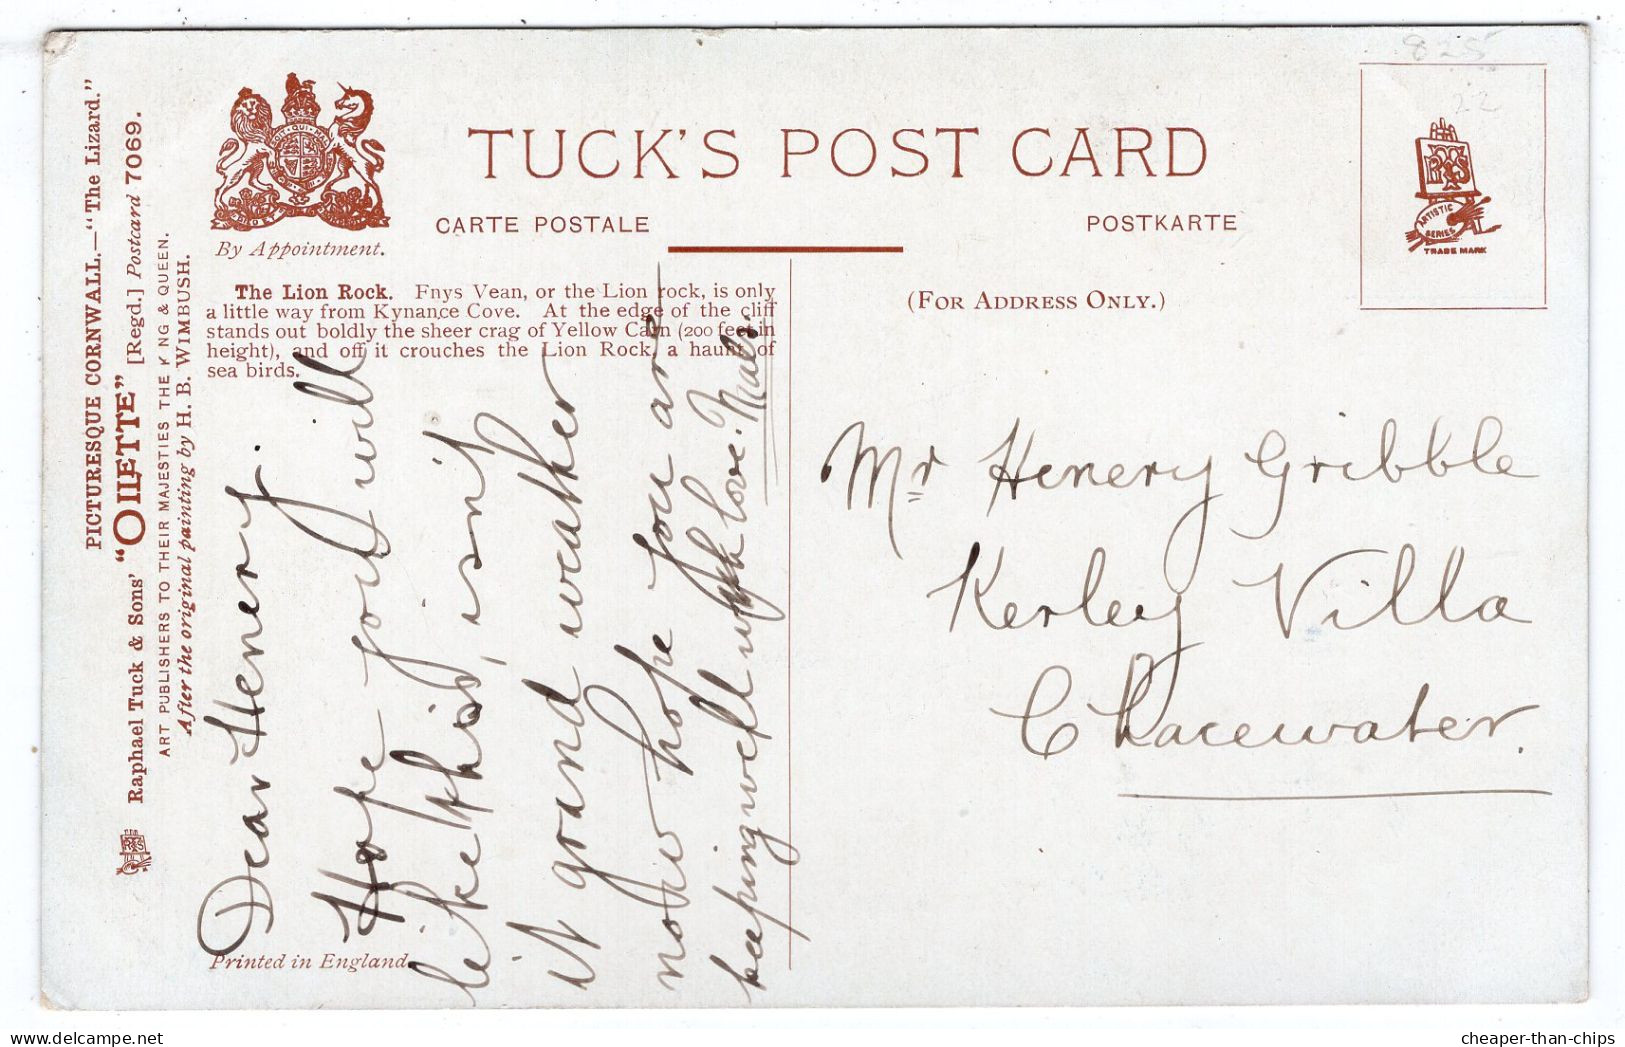 PICTURESQUE CORNWALL.—"The Lizard."
Raphael Tuck & Sons' "OILETTE" [Regd.] Postcard 7069.
ART PUBLISHERS TO THEIR MAJESTIES THE K NG & QUEEN.
After the original painting by H. B. WIMBUSH.
By Appointment.
TUCK'S POST CARD
CARTE POSTALE
POSTKARTE
ARTISTIC
SERIES
TRADE MARK
825
22
The Lion Rock. Fnys Vean, or the Lion rock, is only
a little way from Kynance Cove. At the edge of the cliff
stands out boldly the sheer crag of Yellow Carn (200 feet in
height), and off it crouches the Lion Rock, a haunt of
sea birds.
(FOR ADDRESS ONLY.)
Dear Henery
Hope you will
like this, isn't
it grand weather
now hope you are
keeping well with love.
Mr Henery Gribble
Kerley Villa
Chacewater.
Printed in England.
delcampe.net
cheaper-than-chips